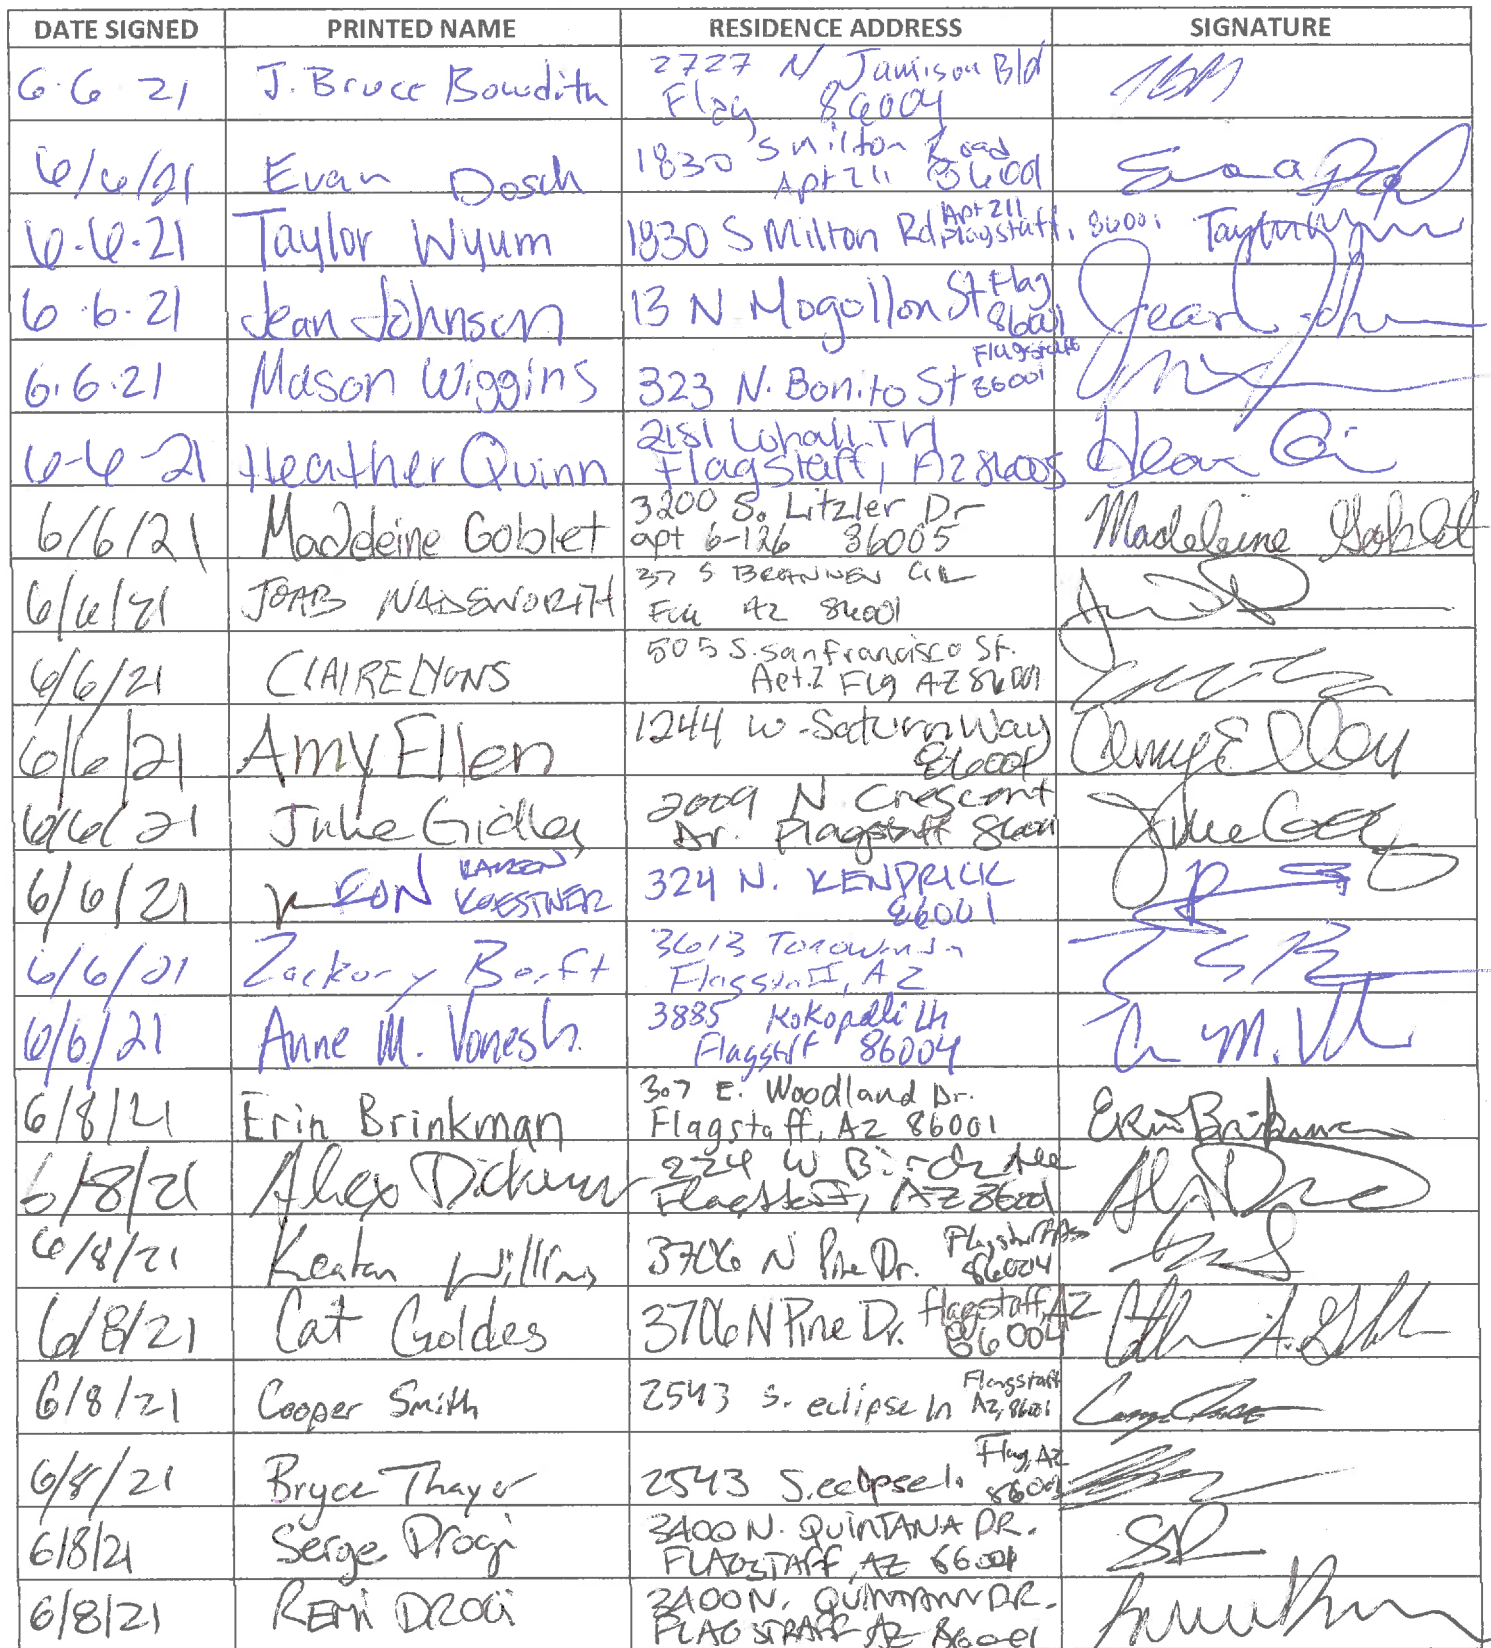 DATE SIGNED PRINTED NAME RESIDENCE ADDRESS SIGNATURE
6·6 21 J. Bruce Bowdith 2727 N Jamison Bld
Flag 86004
6/6/21 Evan Dosch 1830 S Milton Road
Apt 211 86001
6-6-21 Taylor Wyum 1830 S Milton Rd Apt 211
Flagstaff, 86001
6·6·21 Jean Johnson 13 N Mogollon St Flag
86001
6·6·21 Mason Wiggins 323 N. Bonito St Flagstaff
86001
6-6-21 Heather Quinn 2181 Trl
Flagstaff, AZ 86005
6/6/21 Madeleine Goblet 3200 S. Litzler Dr Madeleine Goblet
apt 6-126 86005
6/6/21 JOAB WADSWORTH 37 S BRANNEN CIR
AZ 86001
6/6/21 CLAIRE LYONS 505 S. San francisco St.
Apt. 2 Flg AZ 86001
6/6/21 Amy Ellen 1244 W. Saturn Way
86001
6/6/21 Julie Gidley 2009 N Crescent
Dr. Flagstaff 86001
6/6/21 KAREN
KOESTNER 324 N. KENDRICK
86001
6/6/21 Zackary 3613
Flagstaff, AZ
6/6/21 Anne M. Vanesh 3885 Kokopelli Ln
Flagstff 86004
6/8/21 Erin Brinkman 307 E. Woodland Dr. Erin Brinkman
Flagstaff, AZ 86001
6/8/21 Alex 224 W Birch Ave
Flagstaff, AZ 86001
6/8/21 Keaton Willims 3706 N Pine Dr. Flagstaff
86004
6/8/21 Cat Goldes 3706 N Pine Dr. flagstaff, AZ
86004
6/8/21 Cooper Smith 2543 S. eclipse ln Flagstaff
AZ, 86001
6/8/21 Bryce Thayer 2543 S. eclipse ln Flag, AZ
86001
6/8/21 Serge Drogi 3400 N. QUINTANA DR.
FLAGSTAFF, AZ 86001
6/8/21 REMI DROGI 3400 N. QUINTANA DR.
FLAGSTRAFF AZ 86001